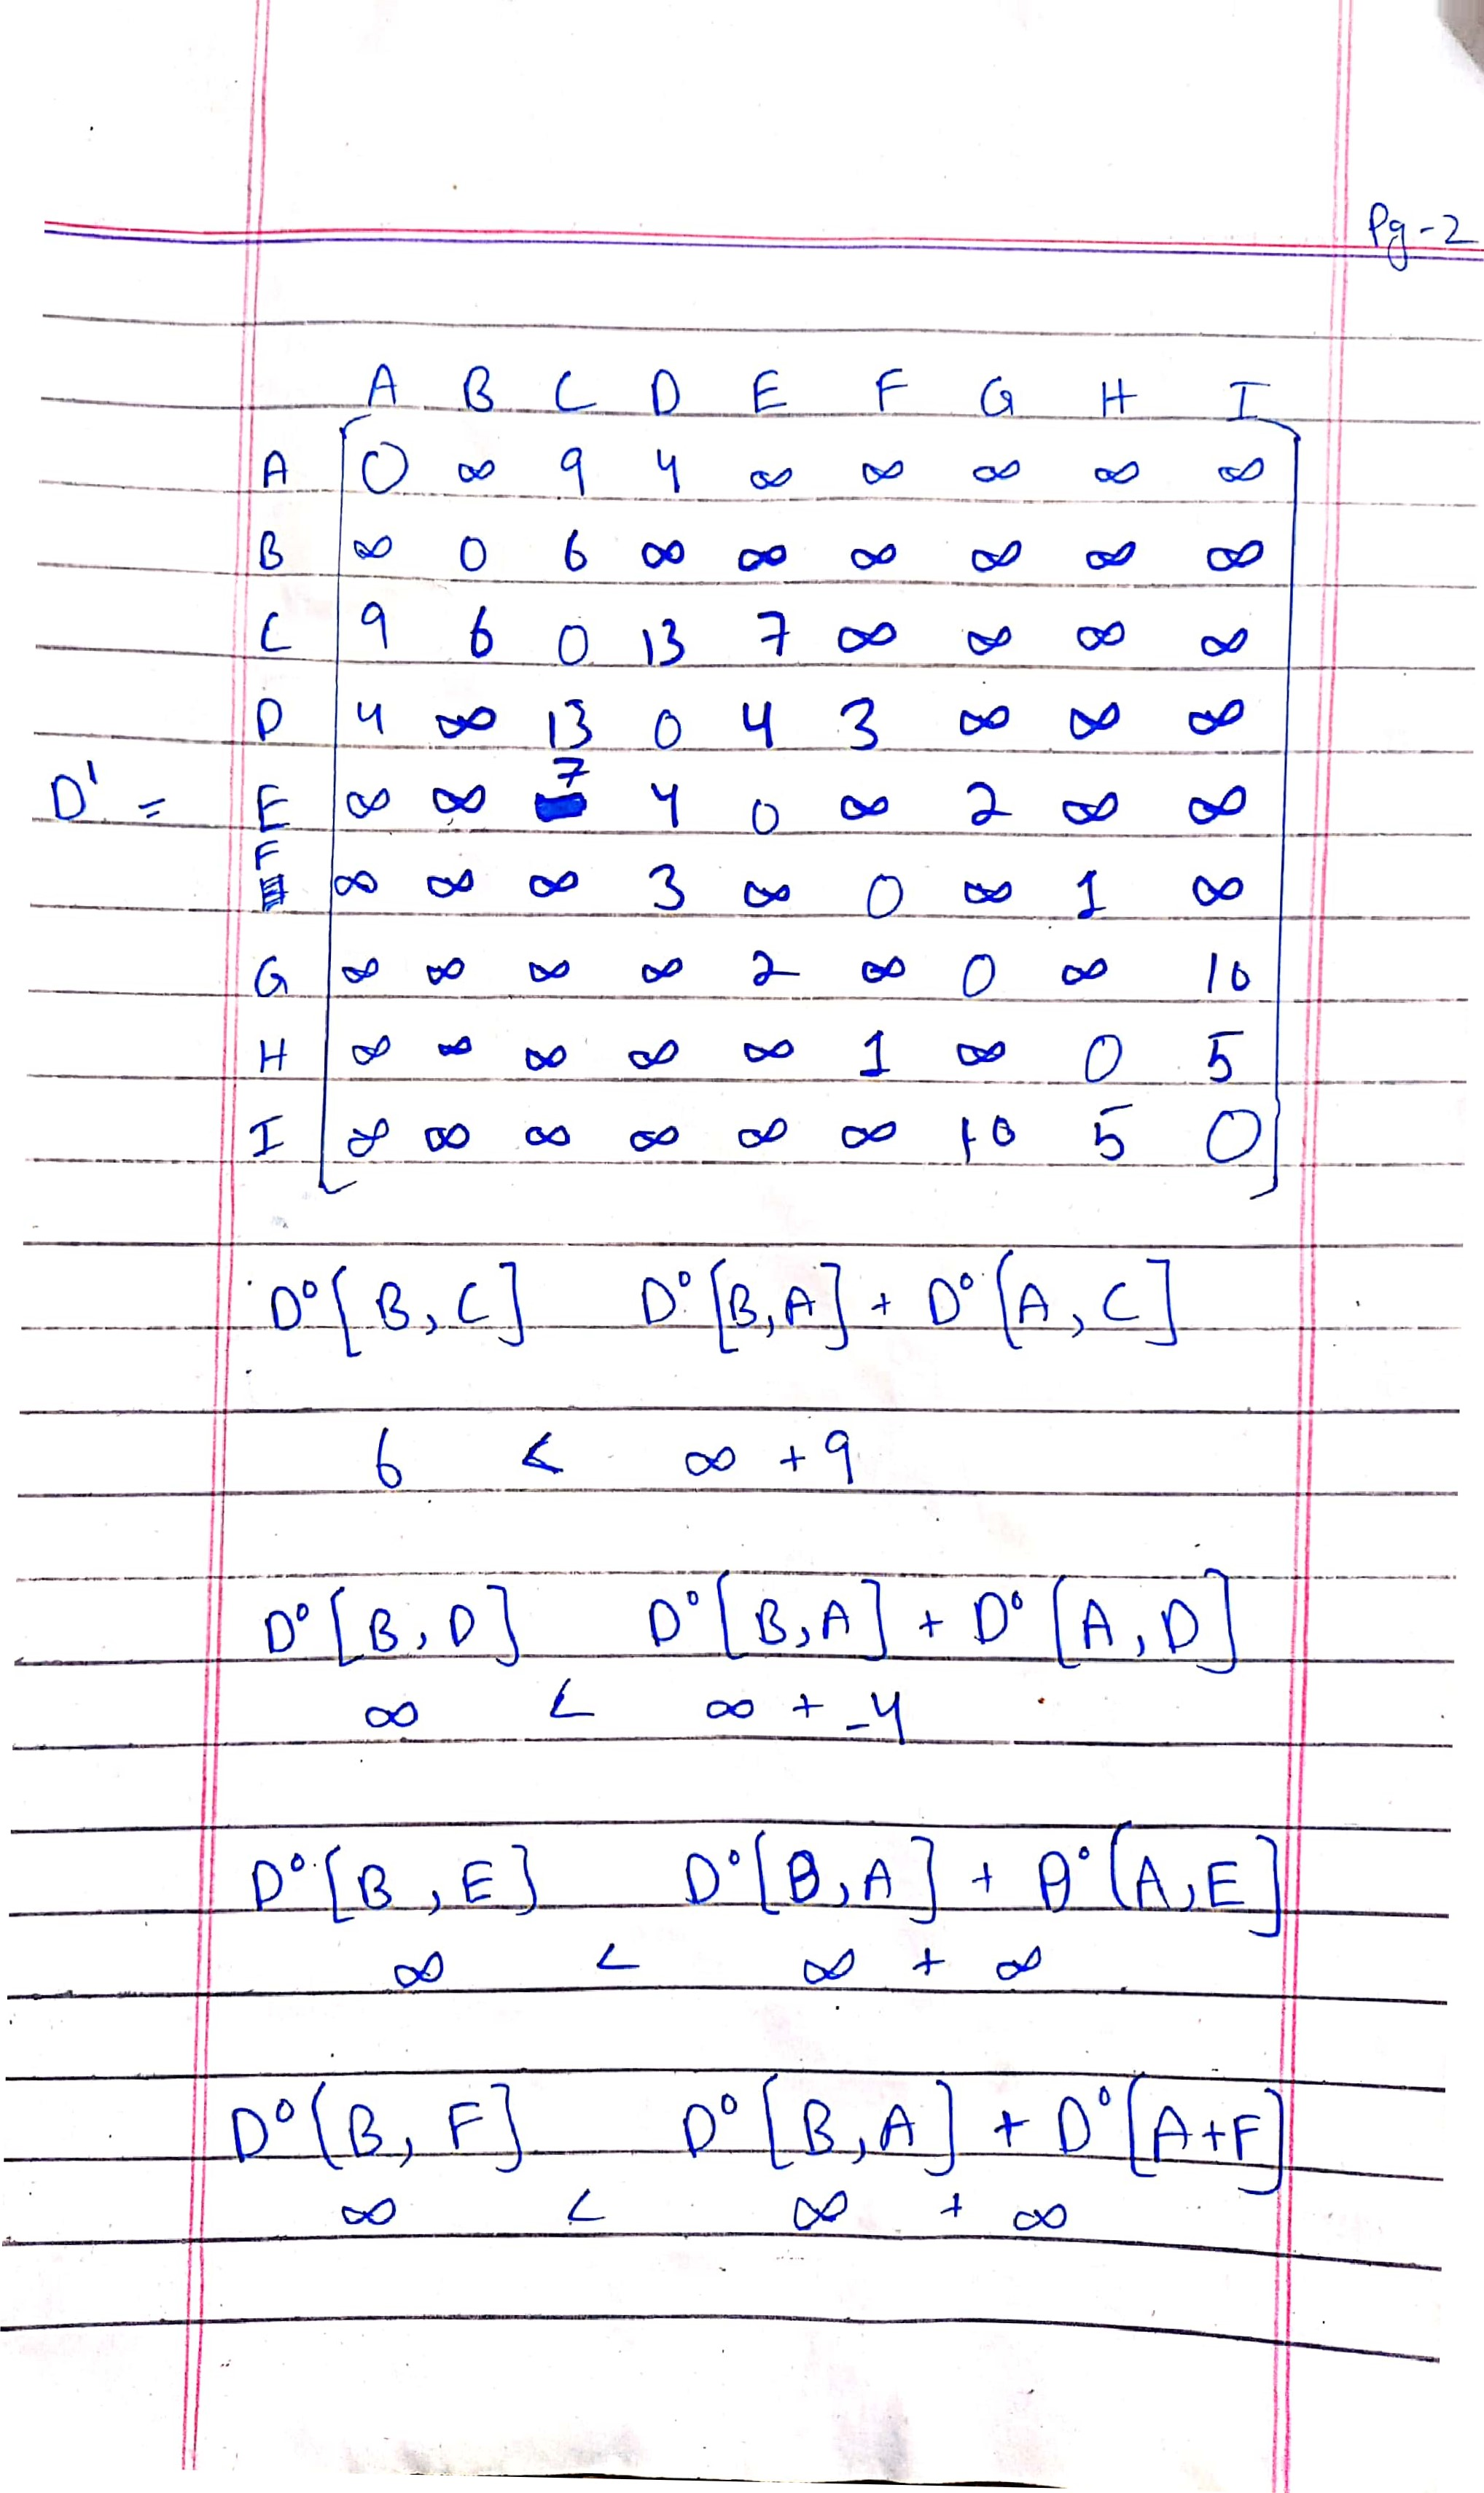 Pg-2
A B C D E F G H I
A 0 ∞ 9 4 ∞ ∞ ∞ ∞ ∞
B ∞ 0 6 ∞ ∞ ∞ ∞ ∞ ∞
C 9 6 0 13 7 ∞ ∞ ∞ ∞
D 4 ∞ 13 0 4 3 ∞ ∞ ∞
D' = E ∞ ∞ 7 4 0 ∞ 2 ∞ ∞
F ∞ ∞ ∞ 3 ∞ 0 ∞ 1 ∞
G ∞ ∞ ∞ ∞ 2 ∞ 0 ∞ 10
H ∞ ∞ ∞ ∞ ∞ 1 ∞ 0 5
I ∞ ∞ ∞ ∞ ∞ ∞ 10 5 0
D⁰[B, C] D⁰[B, A] + D⁰[A, C]
6 < ∞ + 9
D⁰[B, D] D⁰[B, A] + D⁰[A, D]
∞ < ∞ + -4
D⁰[B, E] D⁰[B, A] + D⁰[A, E]
∞ < ∞ + ∞
D⁰[B, F] D⁰[B, A] + D⁰[A+F]
∞ < ∞ + ∞